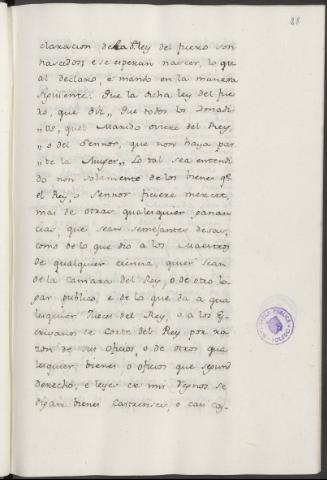 28
claracion de la ley del fuero son
nascidos e se esperan nascer, lo qu
al declaro, e mando en la manera
siguiente. Que la dicha ley del fue
ro, que diz „ Que todos los donadi
„ os, quel Marido oviere del Rey,
„ o del Sennor, que non haya par
„ te la Muger „ Lo tal sea entendi
do non solamente de los bienes qe
el Rey, o Sennor ficiere merced,
mas de otras qualesquier ganan
cias, que sean semejantes desas,
como de lo que dio a los Maestros
de qualquier ciencia, quier sean
de la camara del Rey, o de otro lo
gar publico, e de lo que da a qua
lesquier Jueces del Rey, o a los Es-
crivanos de Corte del Rey por ra
zon de sus oficios, o de otros qua
lesquier bienes, o oficios que segund
derecho, e leyes de mis Regnos se
digan bienes Castrenses, o casi cas-
BIBLIOTECA PUBLICA
TOLEDO